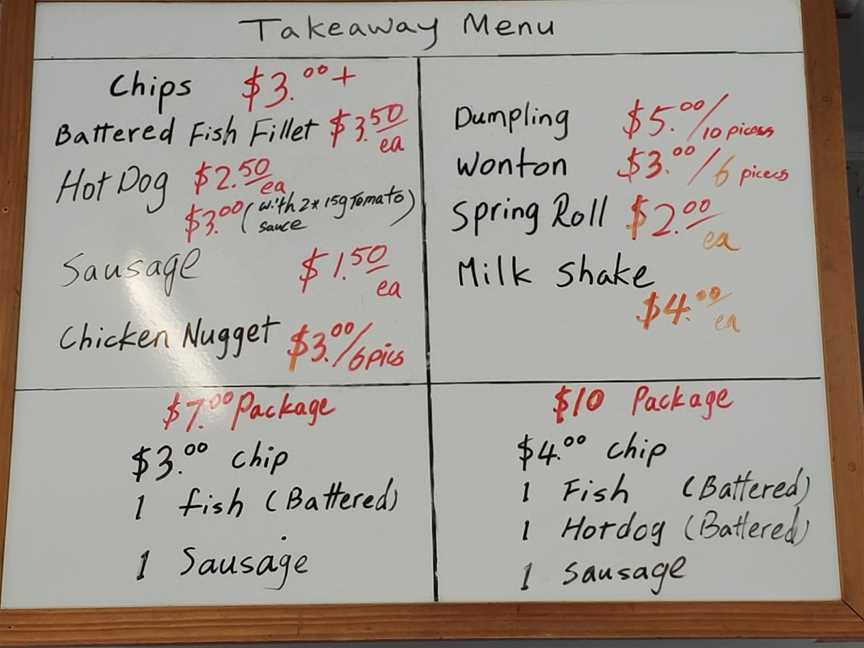 Takeaway Menu
Chips $3.00+
Battered Fish Fillet $3.50/ea
Hot Dog $2.50/ea
$3.00 (with 2* 15g Tomato sauce)
Sausage $1.50/ea
Chicken Nugget $3.00/6pics
Dumpling $5.00/10 picess
Wonton $3.00/6 picecs
Spring Roll $2.00/ea
Milk shake
$4.00/ea
$7.00 Package
$3.00 chip
1 fish (Battered)
1 Sausage
$10 Package
$4.00 chip
1 Fish (Battered)
1 Hotdog (Battered)
1 Sausage